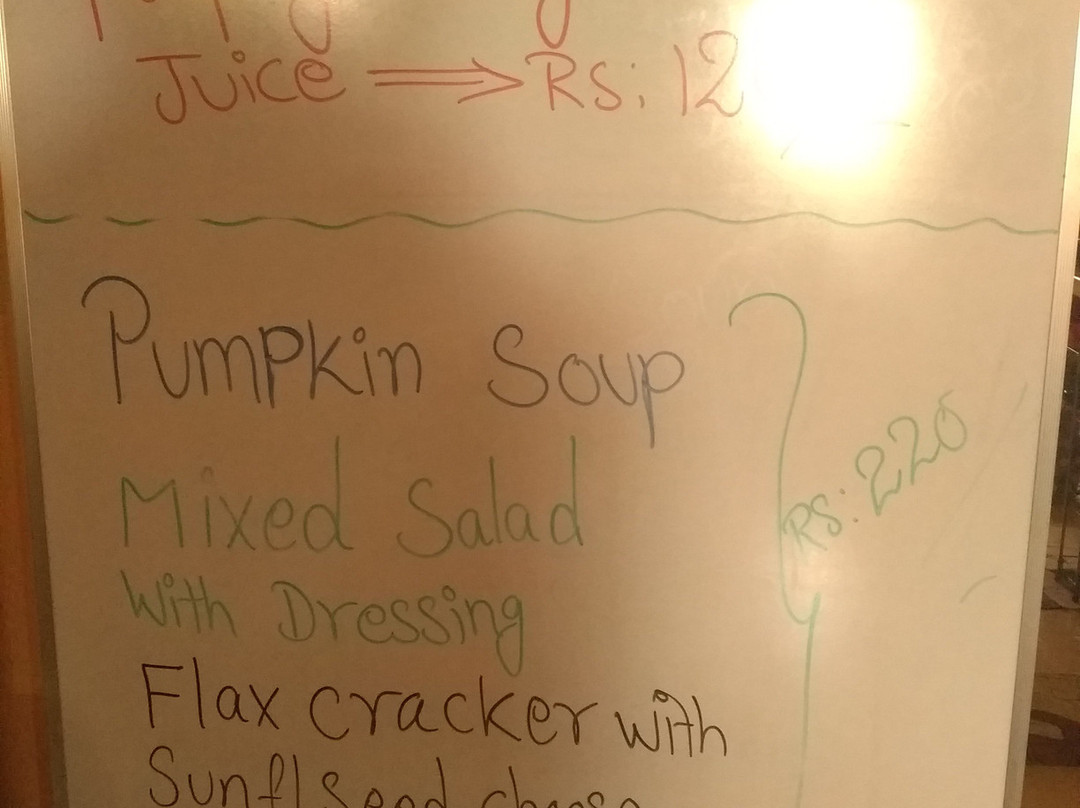 Juice ⟹ RS: 12
Pumpkin Soup
Mixed Salad
With Dressing
RS: 220
Flax cracker with
Sunfl Seed cheese